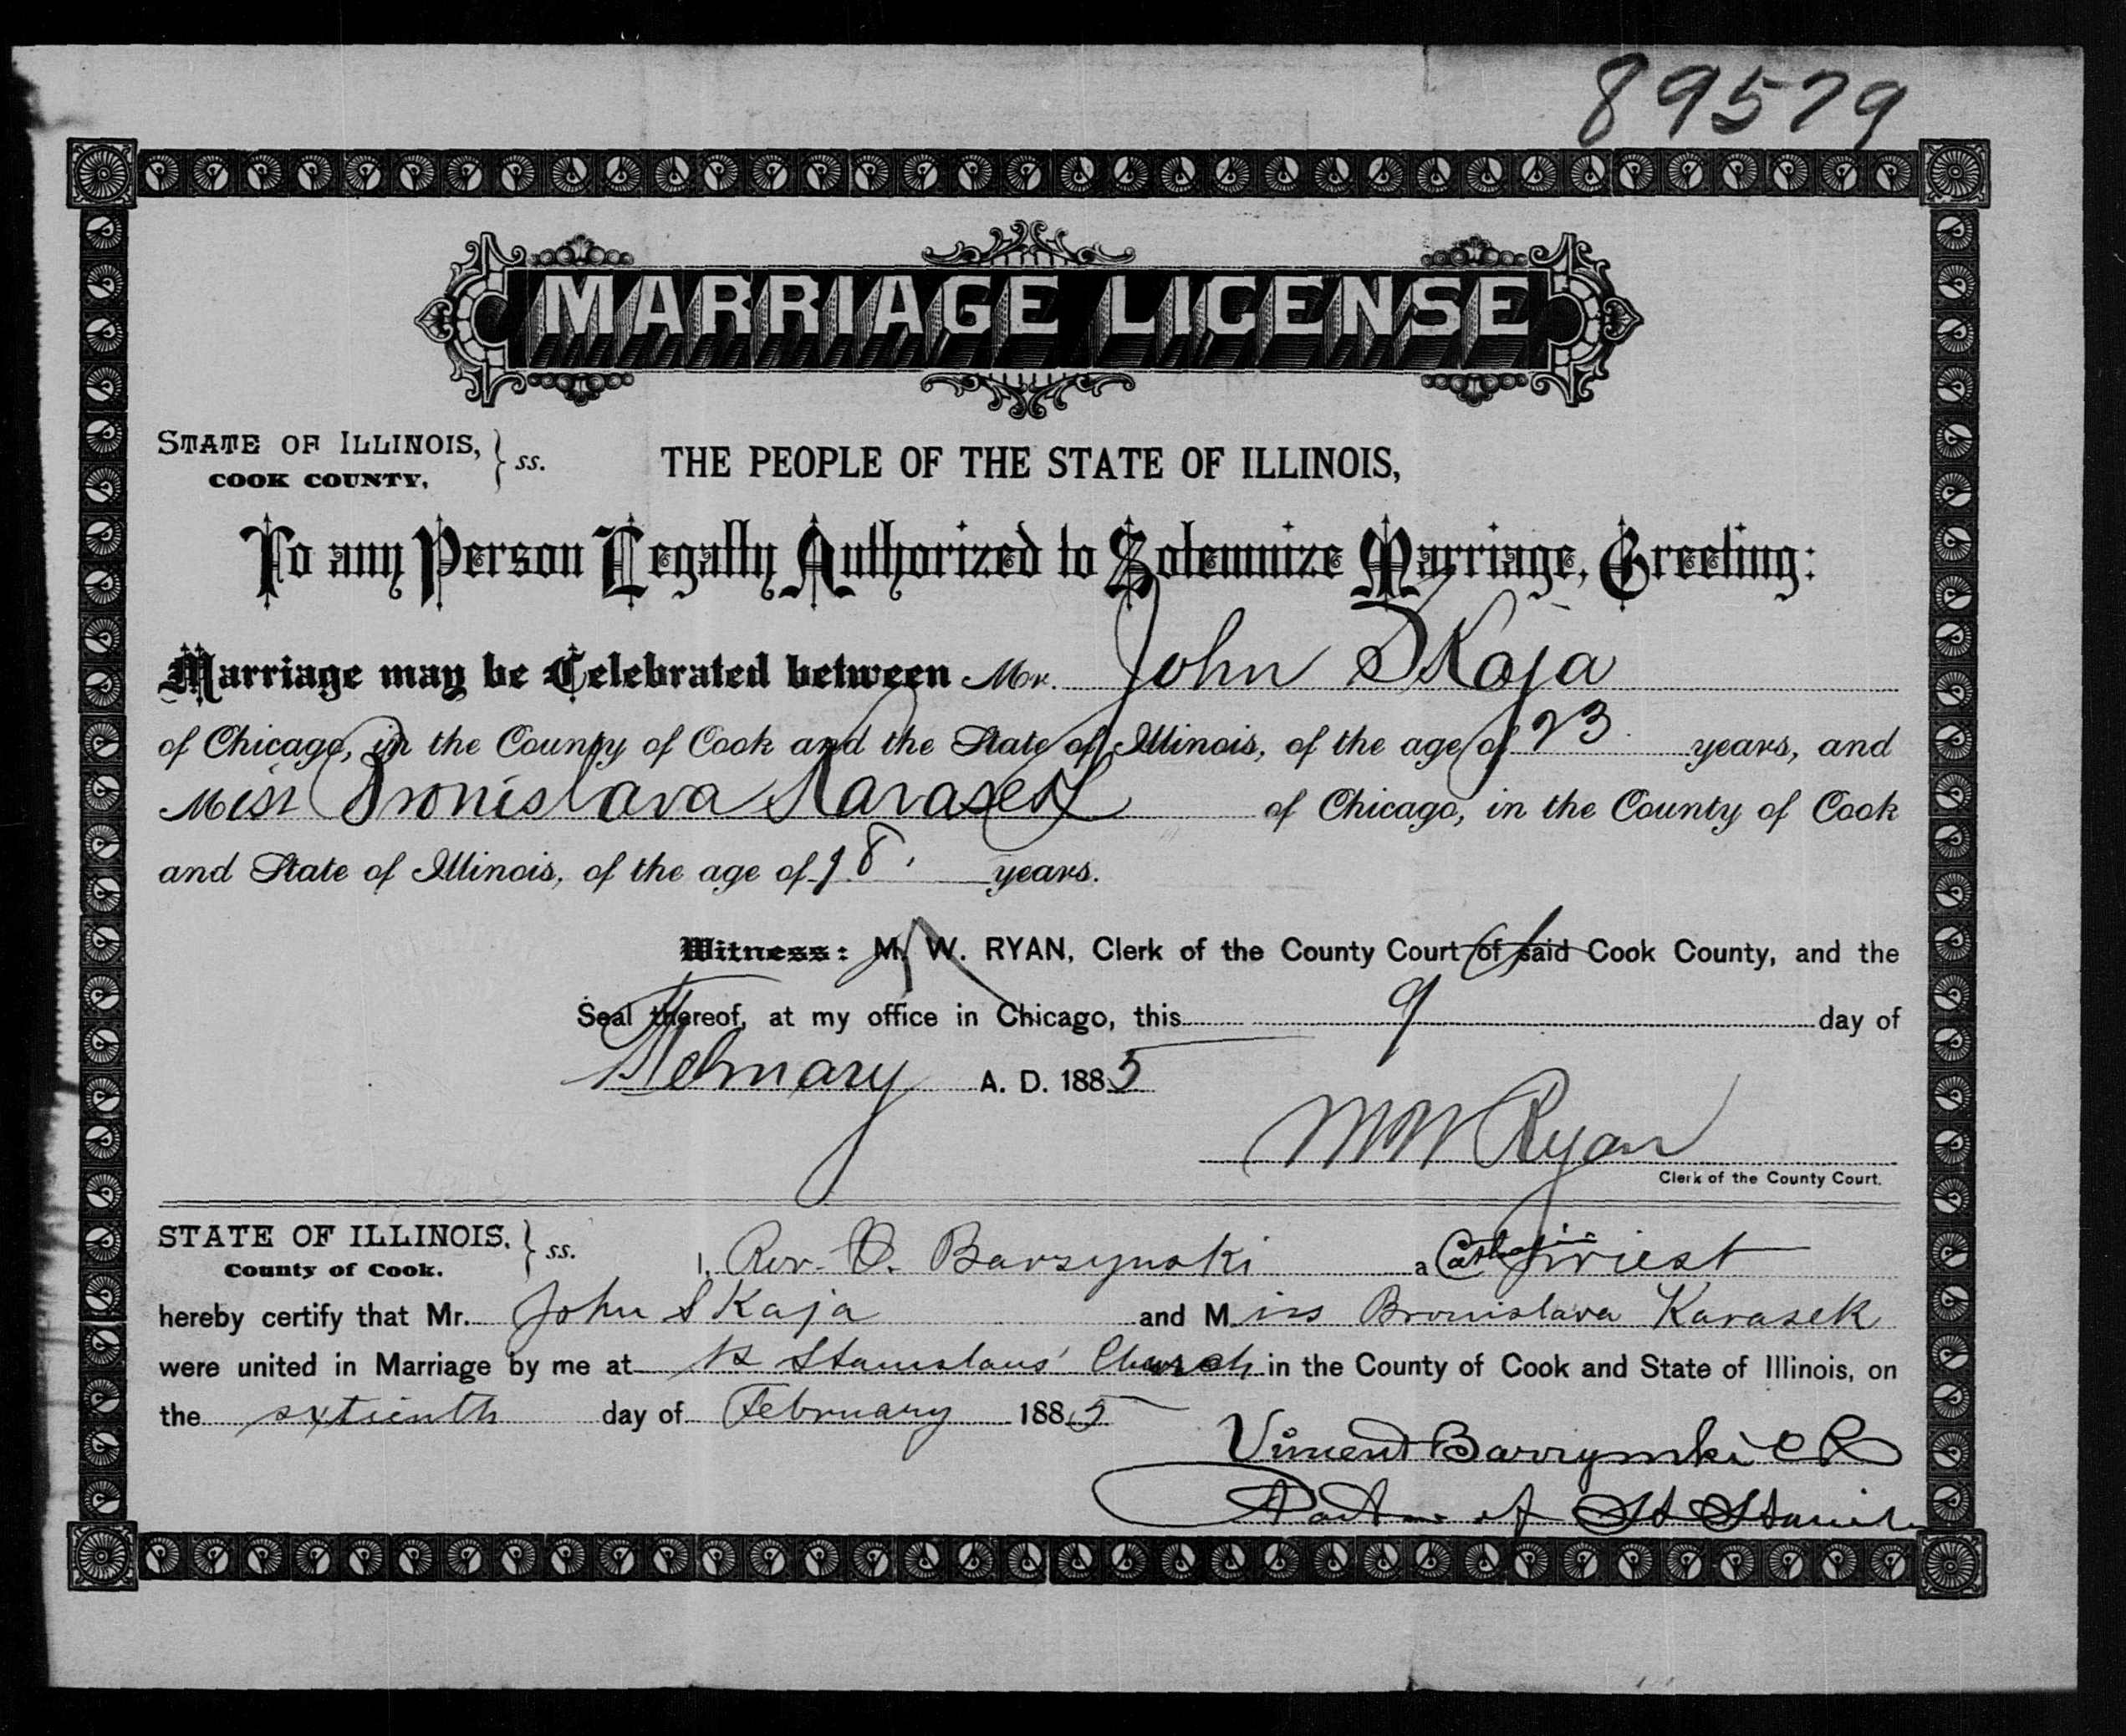 89579
MARRIAGE LICENSE
STATE OF ILLINOIS, } ss. THE PEOPLE OF THE STATE OF ILLINOIS,
COOK COUNTY,
To any Person Legally Authorized to Solemnize Marriage, Greeting:
Marriage may be Celebrated between Mr. John Skaja
of Chicago, in the County of Cook and the State of Illinois, of the age of 23 years, and
Miss Bronislava Karasek of Chicago, in the County of Cook
and State of Illinois, of the age of 18. years.
Witness: M. W. RYAN, Clerk of the County Court of said Cook County, and the
Seal thereof, at my office in Chicago, this 9 day of
February A. D. 1885
M W Ryan
Clerk of the County Court.
STATE OF ILLINOIS, } ss. I, Rev. V. Barzynski a Catholic Priest
County of Cook.
hereby certify that Mr. John Skaja and Miss Bronislava Karasek
were united in Marriage by me at St Stanislaus' Church in the County of Cook and State of Illinois, on
the sixtienth day of February 1885
Vincent Barzynski CR
Pastor of St Stanisl